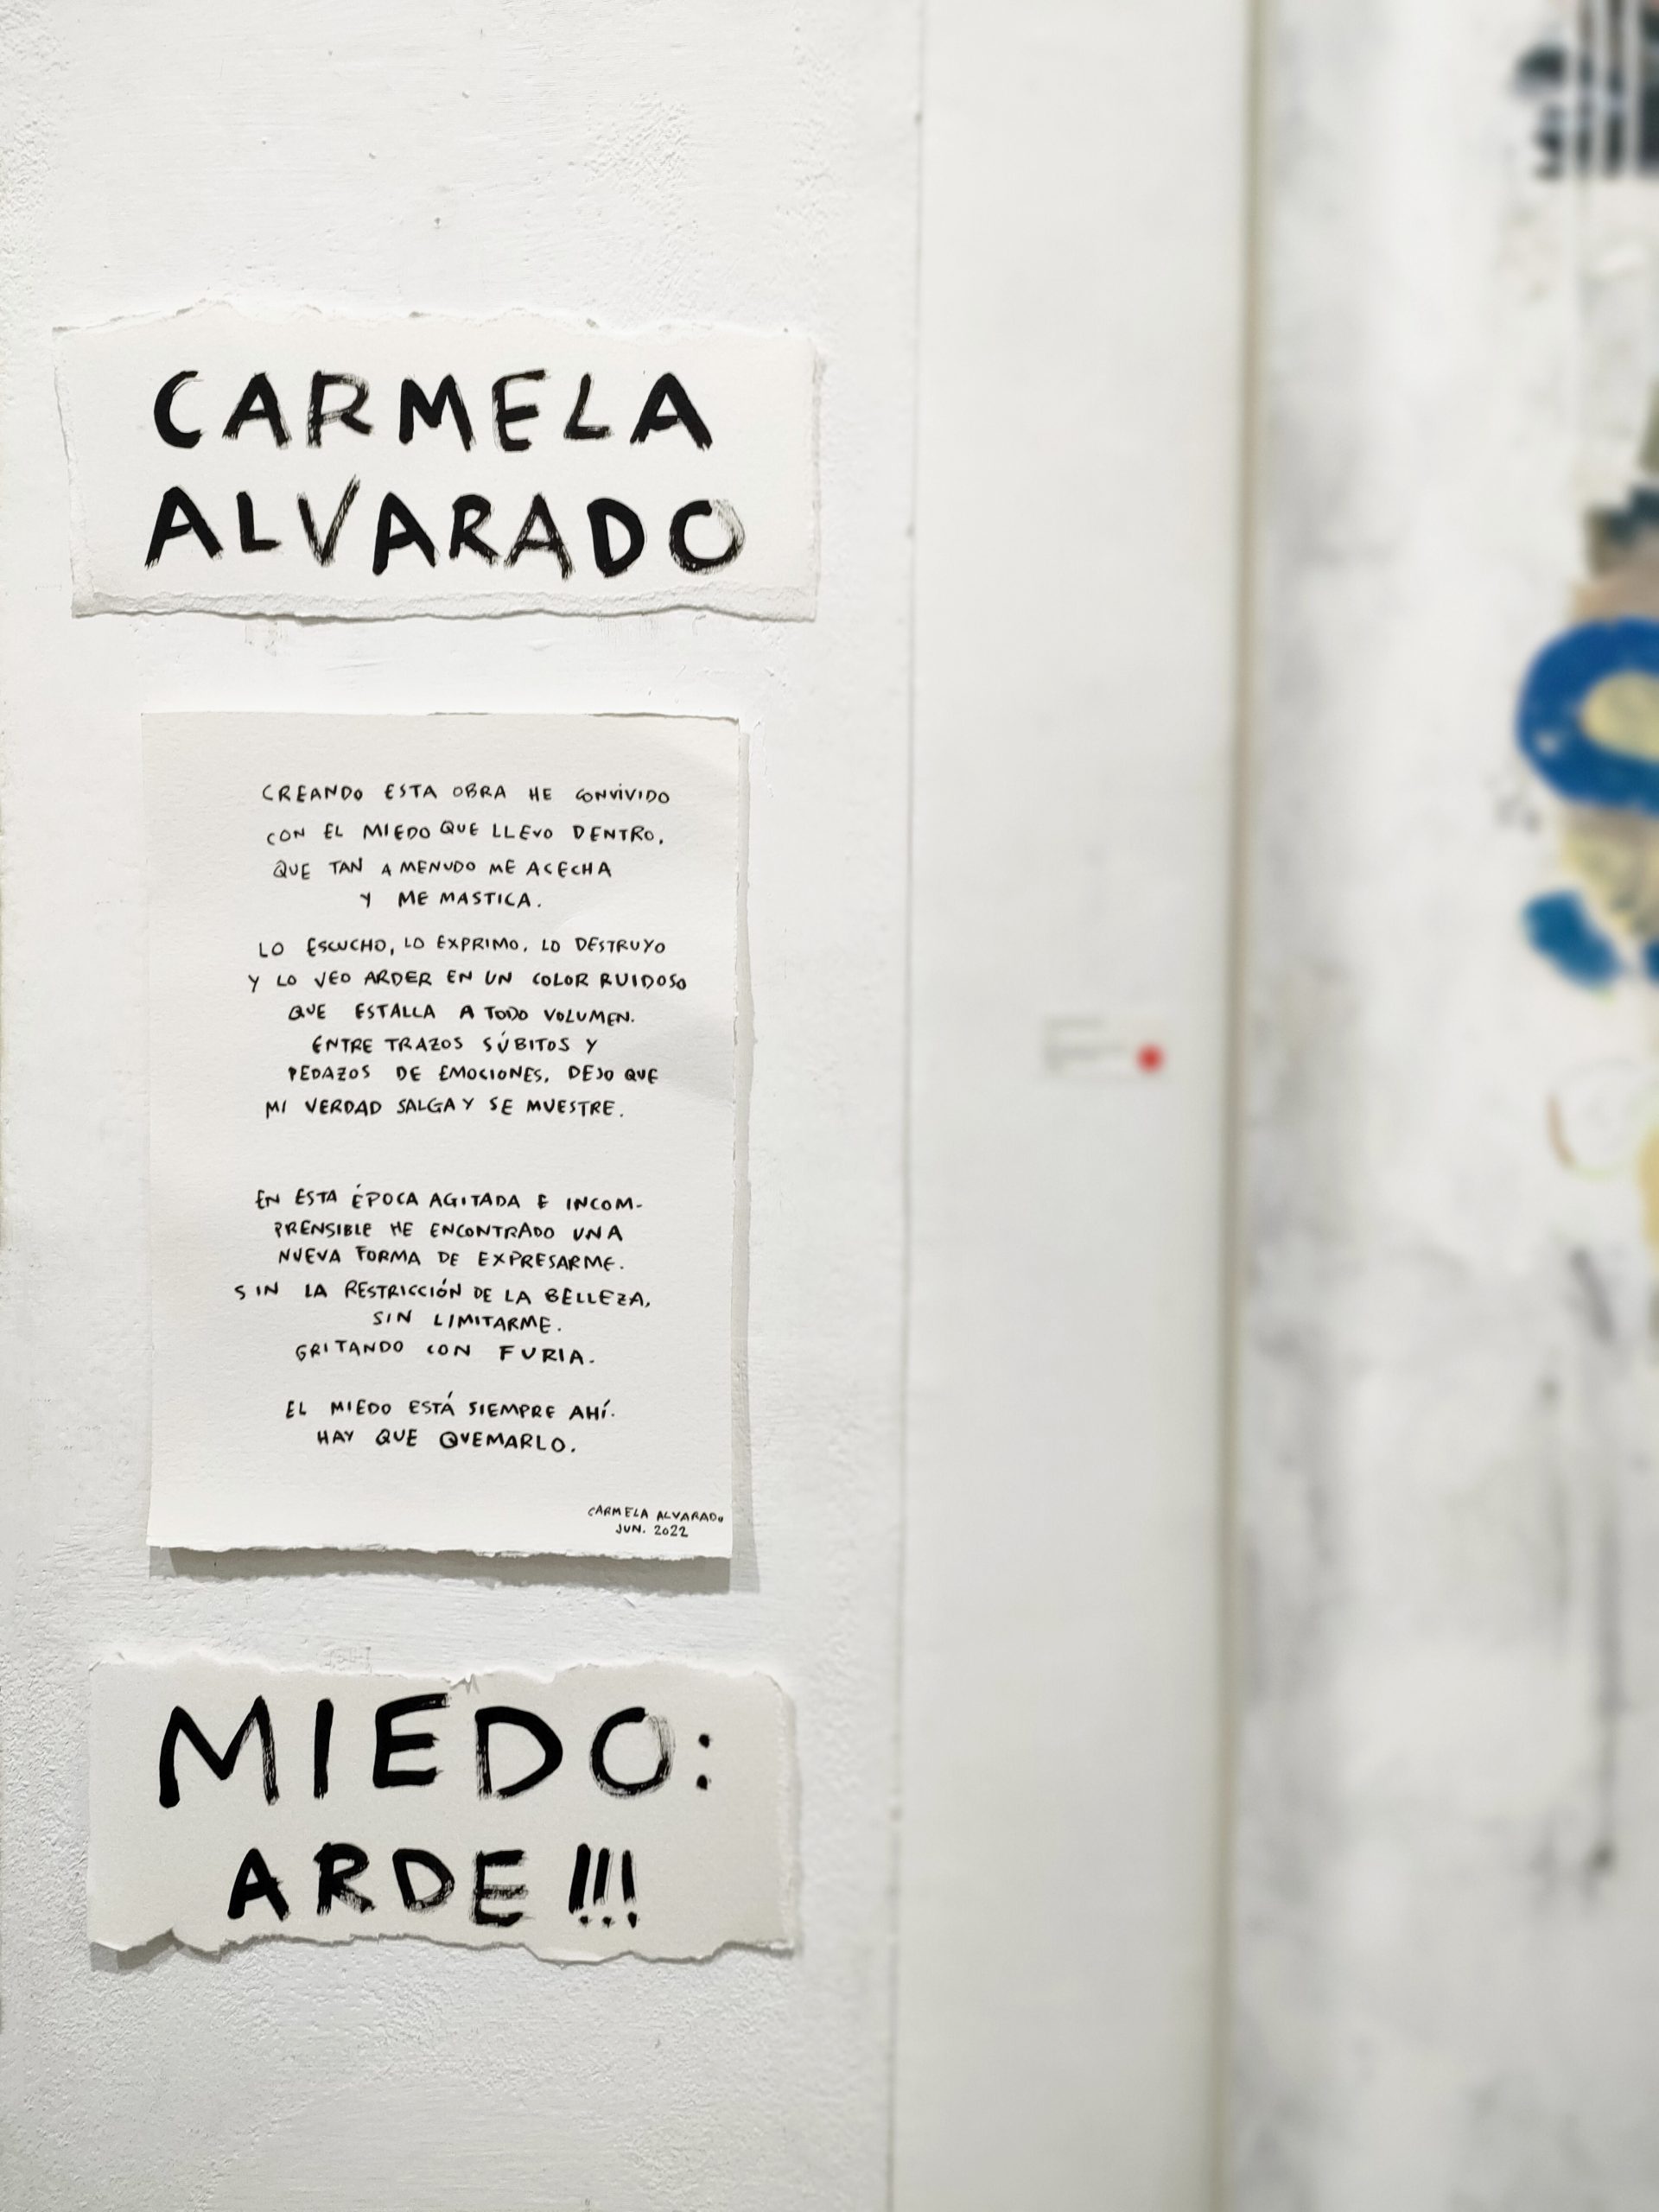 CARMELA
ALVARADO
CREANDO ESTA OBRA HE CONVIVIDO
CON EL MIEDO QUE LLEVO DENTRO,
QUE TAN A MENUDO ME ACECHA
Y ME MASTICA.
LO ESCUCHO, LO EXPRIMO, LO DESTRUYO
Y LO VEO ARDER EN UN COLOR RUIDOSO
QUE ESTALLA A TODO VOLUMEN.
ENTRE TRAZOS SÚBITOS Y
PEDAZOS DE EMOCIONES, DEJO QUE
MI VERDAD SALGA Y SE MUESTRE.
EN ESTA ÉPOCA AGITADA E INCOM-
PRENSIBLE HE ENCONTRADO UNA
NUEVA FORMA DE EXPRESARME.
SIN LA RESTRICCIÓN DE LA BELLEZA,
SIN LIMITARME.
GRITANDO CON FURIA.
EL MIEDO ESTÁ SIEMPRE AHÍ.
HAY QUE QUEMARLO.
CARMELA ALVARADO
JUN. 2022
MIEDO:
ARDE!!!